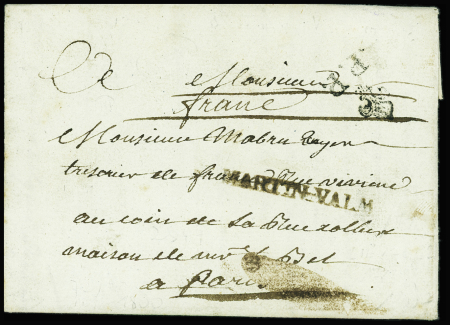 Monsieur
franc
P.P.
Monsieur Mabru
tresorier de france Rue vivienne
MARTIN-VALM
au coin de la Rue
maison de mr le Bel
a paris